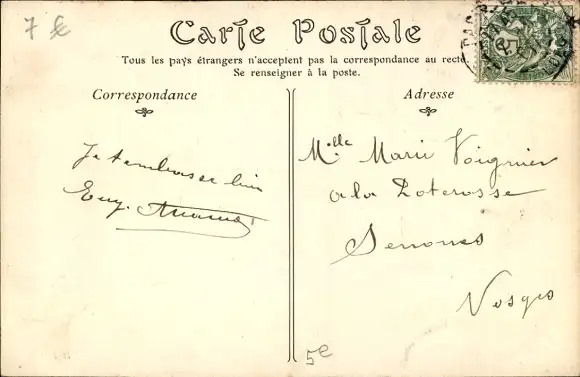 7 €
Carte Postale
Tous les pays étrangers n'acceptent pas la correspondance au recto.
Se renseigner à la poste.
Correspondance
Je t'embrasse bien
Eug.
Adresse
Mlle Marie Voignier
a la Poterosse
Senones
Vosges
5e